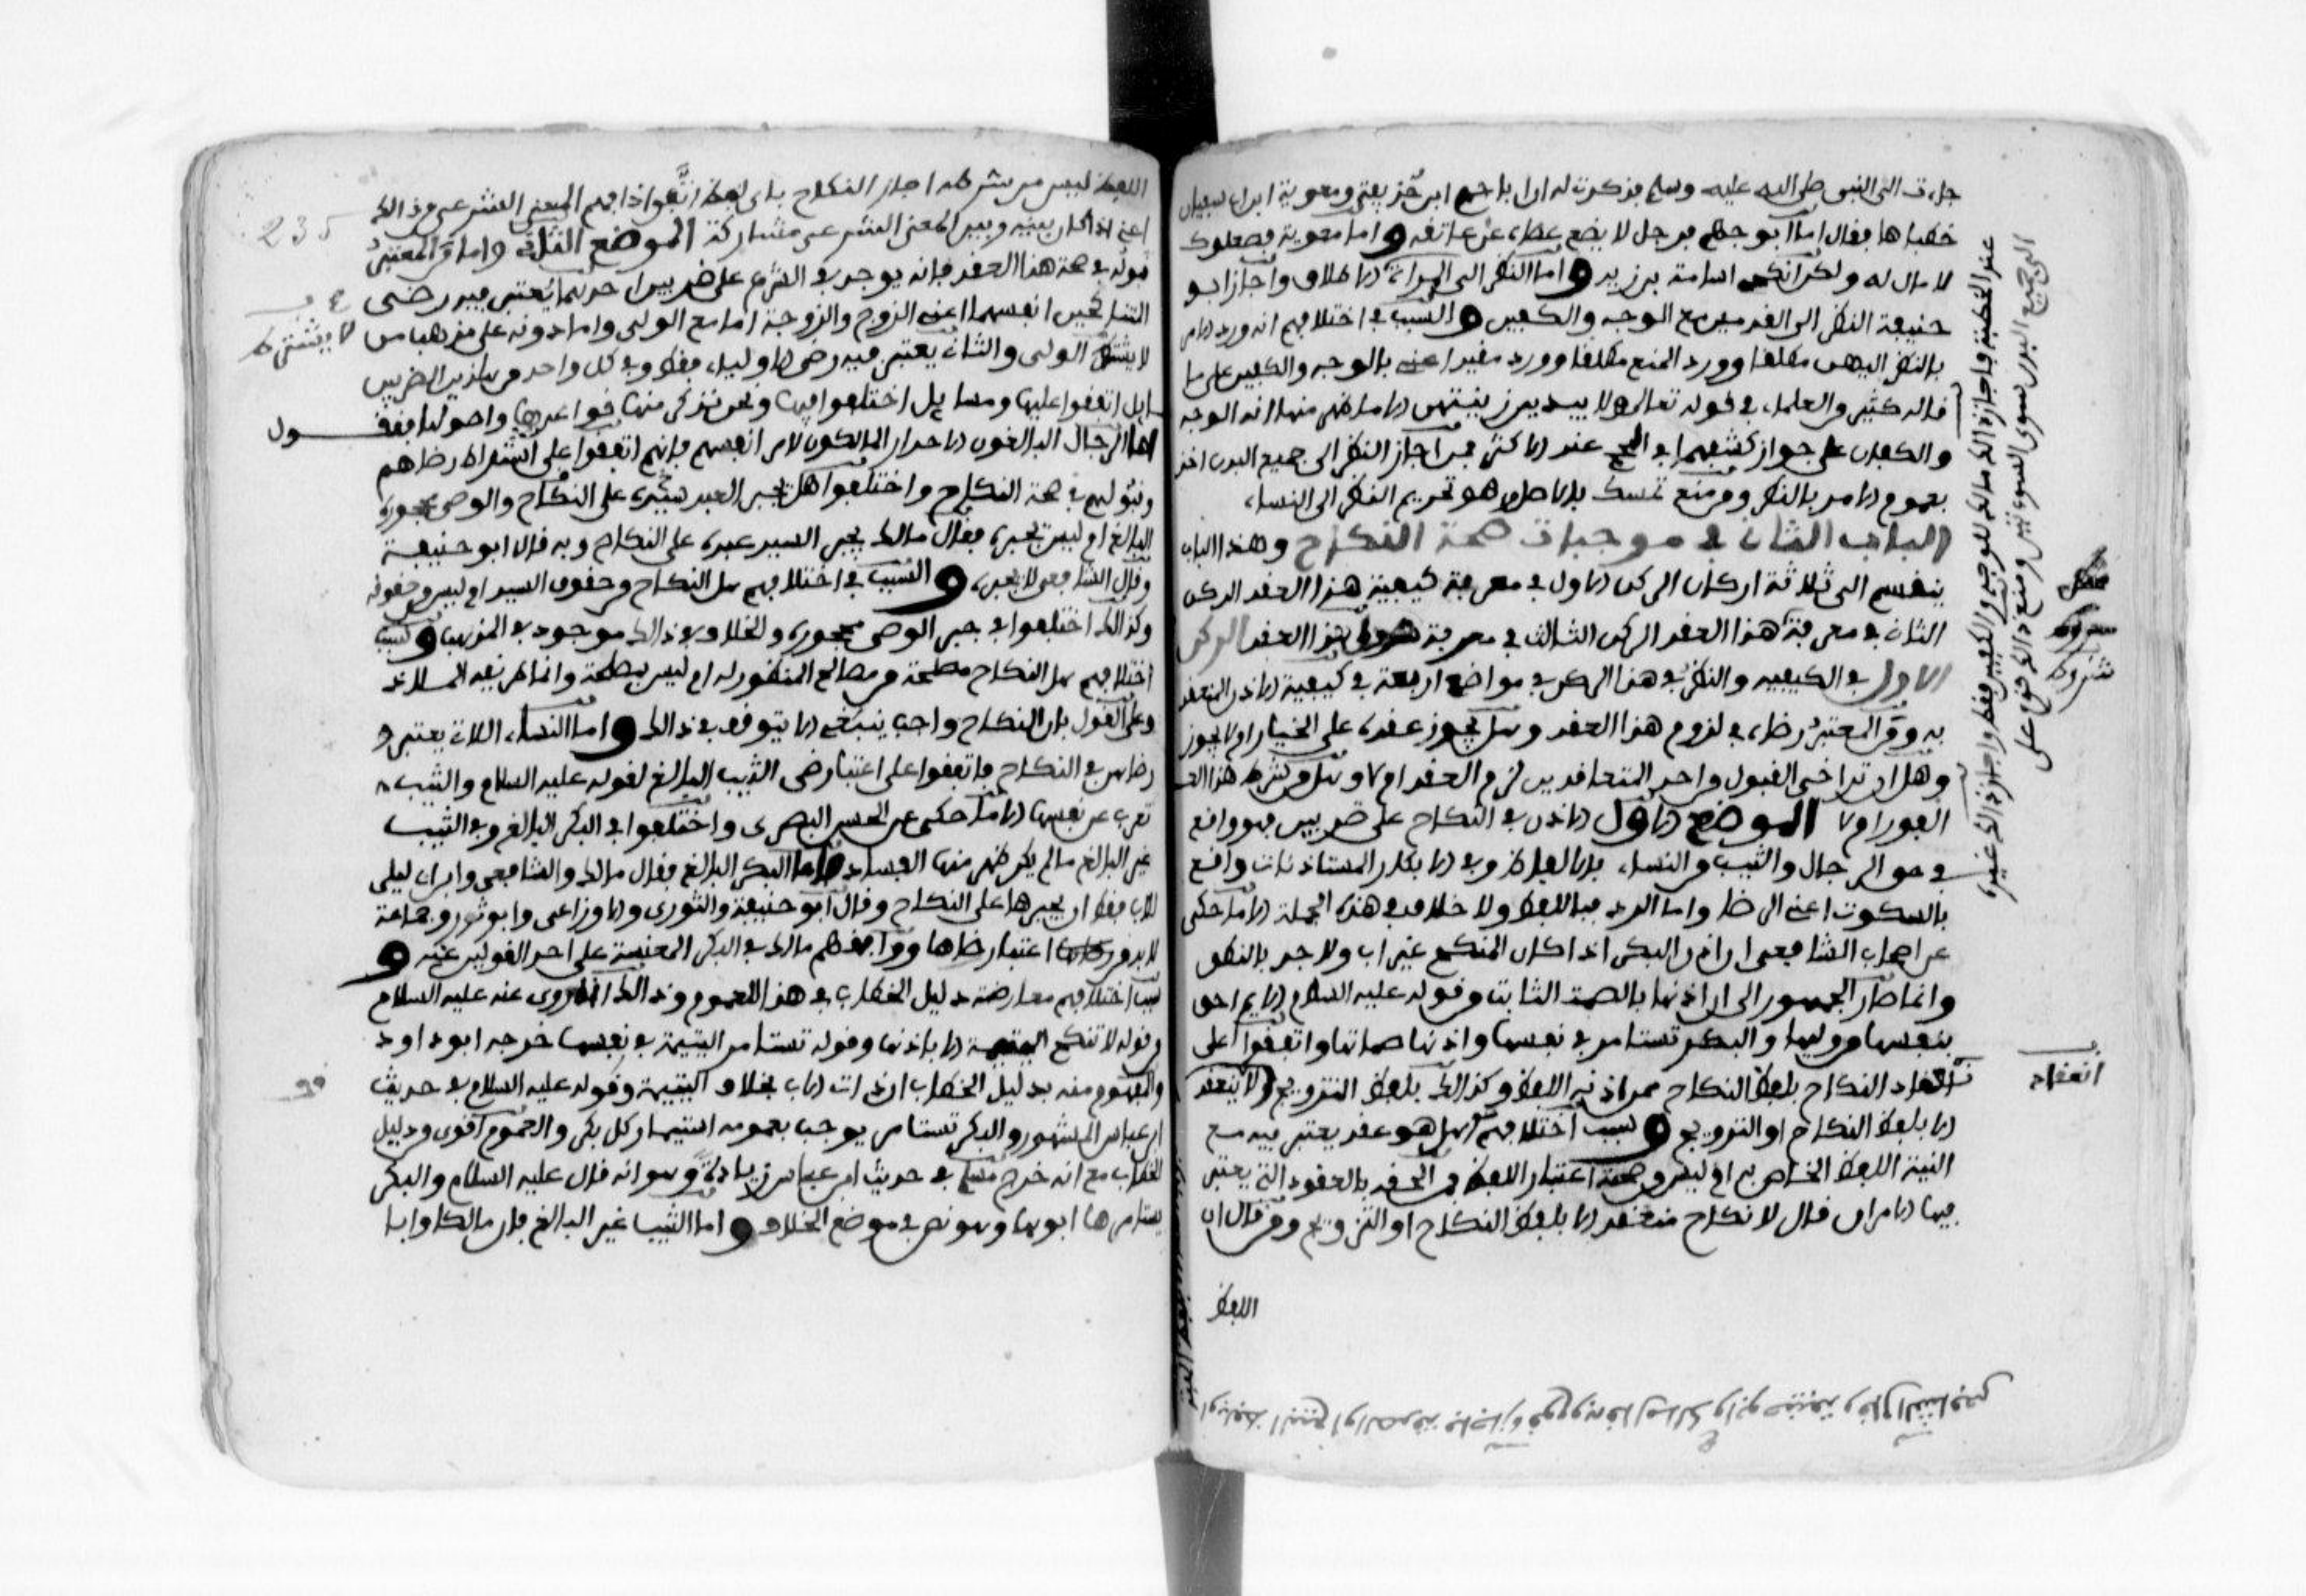 جاءت الى النبي صلى الله عليه وسلم فذكرت له ان ابا جهم ابن حذيفة ومعوية ابن ابي سفيان
خطباها فقال اما ابو جهم فرجل لا يضع عصاه عن عاتقه واما معوية فصعلوك
لا مال له ولكن انكحي اسامة بن زيد واما النظر الى المراة الاطلاق واجاز ابو
حنيفة النظر الى القدمين مع الوجه والكفين والسبب في اختلافهم انه ورد الامر
بالنظر اليهن مطلقا وورد المنع مطلقا وورد مقيدا اعني بالوجه والكفين على ما
قاله كثير من العلماء في قوله تعالى ولا يبدين زينتهن الا ما ظهر منها انه الوجه
والكفان على جواز كشفهما في الحج عند الاكثر فمن اجاز النظر الى جميع البدن اخذ
بعموم الامر بالنظر ومن منع تمسك بالاصل وهو تحريم النظر الى النساء
الباب الثاني في موجبات صحة النكاح وهذا الباب
ينقسم الى ثلاثة اركان الركن الاول في معرفة كيفية هذا العقد الركن
الثاني في معرفة هذا العقد الركن الثالث في معرفة شروط هذا العقد الركن
الاول في الكيفية والنظر في هذا الركن في مواضع اربعة في كيفية الاذن المنعقد
به ومن المعتبر رضاه في لزوم هذا العقد وهل يجوز عقده على الخيار ام لا يجوز
وهل ان تراخى القبول من احد المتعاقدين لزم العقد ام لا وهل من شرط هذا العقد
الفور ام لا الموضع الاول الاذن في النكاح على ضربين فهو واقع
في حق الرجال والثيب من النساء بالالفاظ وفي الابكار المستاذنات واقع
بالسكوت اعني الرضا واما الرد فباللفظ ولا خلاف في هذه الجملة الا ما حكي
عن اصحاب الشافعي ان اذن البكر اذا كان المنكح غير اب ولا جد بالنطق
وانما صار الجمهور الى ان اذنها بالصمت الثابت من قوله عليه السلام الايم احق
بنفسها من وليها والبكر تستامر في نفسها واذنها صماتها واتفقوا على
انعقاد النكاح بلفظ النكاح ممن اذنه اللفظ وكذالك بلفظ التزويج ولا ينعقد
الا بلفظ النكاح او التزويج وسبب اختلافهم هل هو عقد يعتبر فيه مع
النية اللفظ الخاص به ام ليس من صحته اعتبار اللفظ فمن الحقه بالعقود التي يعتبر
فيها الامران قال لا نكاح منعقد الا بلفظ النكاح او التزويج ومن قال ان
اللفظ
عند الخطبة فاجاز ذلك مالك للوجه والكفين فقط واجاز ذلك غيره
الى جميع البدن سوى السوءتين ومنع ذلك قوم على
شروط
انعقاد
اللفظ ليس من شرطه اجاز النكاح باي لفظ اتفق اذا فهم المعنى الشرعي من ذالك
اعني اذا كان بينه وبين المعنى الشرعي مشاركة الموضع الثاني واما من المعتبر
قبوله في صحة هذا العقد فانه يوجد في الشرع على ضربين احدهما يعتبر فيه رضى
المتناكحين انفسهما اعني الزوج والزوجة اما مع الولي واما دونه على مذهب من
لا يشترط الولي والثاني يعتبر فيه رضى الاولياء فقط وفي كل واحد من هاذين الضربين
مسايل اتفقوا عليها ومسايل اختلفوا فيها ونحن نذكر منها قواعدها واصولها فنقول
اما الرجال البالغون الاحرار المالكون لامر انفسهم فانهم اتفقوا على اشتراط رضاهم
وقبولهم في صحة النكاح واختلفوا هل يجبر العبد سيده على النكاح والوصي محجوره
البالغ ام ليس يجبره فقال مالك يجبر السيد عبده على النكاح وبه قال ابو حنيفة
وقال الشافعي لا يجبره والسبب في اختلافهم هل النكاح من حقوق السيد ام ليس من حقوقه
وكذالك اختلفوا في جبر الوصي محجوره والخلاف في ذالك موجود في المذهب وسبب
اختلافهم هل النكاح مصلحة من مصالح المنظور له ام ليس بمصلحة وانما طريقه الملاذ
وعلى القول بان النكاح واجب ينبغي الا يتوقف في ذالك واما النساء اللاتي يعتبر
رضاهن في النكاح فاتفقوا على اعتبار رضى الثيب البالغ لقوله عليه السلام والثيب
تعرب عن نفسها الا ما حكي عن الحسن البصري واختلفوا في البكر البالغ وفي الثيب
غير البالغ ما لم يكن ظهر منها الفساد فاما البكر البالغ فقال مالك والشافعي وابن ابي ليلى
للاب فقط ان يجبرها على النكاح وقال ابو حنيفة والثوري والاوزاعي وابو ثور وجماعة
لابد من اعتبار رضاها ووافقهم مالك في البكر المعنسة على احد القولين عنه و
سبب اختلافهم معارضة دليل الخطاب في هذا للعموم وذالك انه روى عنه عليه السلام
من قوله لا تنكح اليتيمة الا باذنها وقوله تستامر اليتيمة في نفسها خرجه ابو داود
والمفهوم منه بدليل الخطاب ان ذات الاب بخلاف اليتيمة وقوله عليه السلام في حديث
ابن عباس المشهور والبكر تستامر يوجب بعمومه استيمار كل بكر والعموم اقوى من دليل
الخطاب مع انه خرج مسلم في حديث ابن عباس زيادة وهو انه قال عليه السلام والبكر
يستامرها ابوها وهو نص في موضع الخلاف واما الثيب غير البالغ فان مالكا وابا
235
لا يشترط